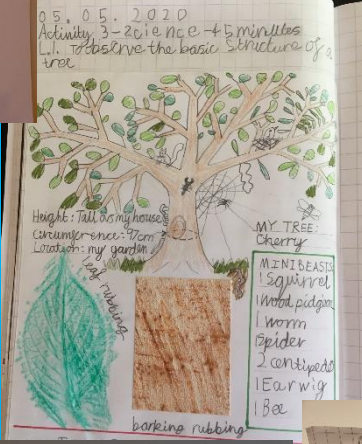 05.05.2020
Activity 3 - 2cience - 45 minutes
L.I. To observe the basic structure of a
tree
Height: Tall as my house
Circumference: 97cm
Location: my garden
MY TREE:
Cherry
leaf rubbing
MINIBEASTS
1 Squirrel
1 wood pidgeon
1 worm
1 spider
2 centipeds
1 Earwig
1 Bee
barking rubbing